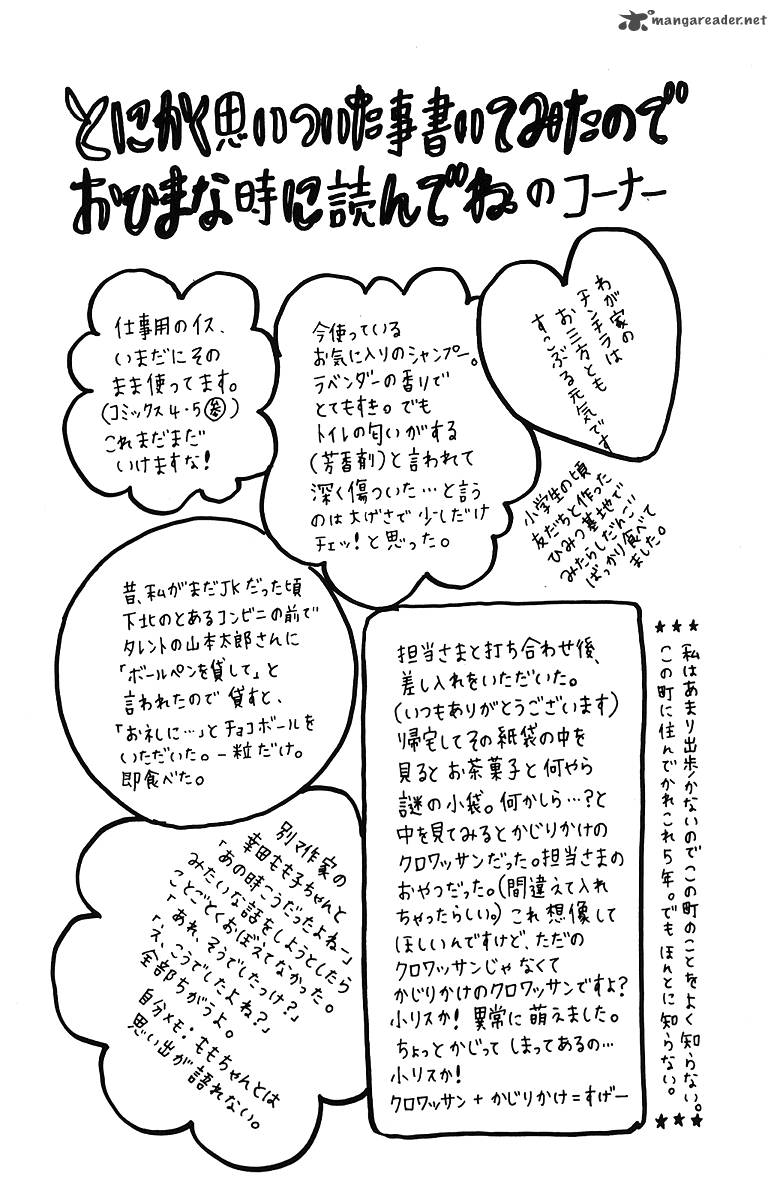 mangareader.net
とにかく思いついた事書いてみたので
おひまな時に読んでね のコーナー
仕事用のイス、
いまだにその
まま使ってます。
(コミックス4・5㊂)
これまだまだ
いけますな!
今使っている
お気に入りのシャンプー。
ラベンダーの香りで
とてもすき。でも
トイレの匂いがする
(芳香剤)と言われて
深く傷ついた…と言う
のは大げさで少しだけ
チェッ!と思った。
わが家の
チンチラは
お三方とも
すこぶる元気です
小学生の頃
友だちと作った
ひみつ基地で
みたらしだんご
ばっかり食べて
ました。
昔、私がまだJKだった頃
下北のとあるコンビニの前で
タレントの山本太郎さんに
「ボールペンを貸して」と
言われたので貸すと、
「お礼しに…」とチョコボールを
いただいた。一粒だけ。
即食べた。
担当さまと打ち合わせ後、
差し入れをいただいた。
(いつもありがとうございます)
帰宅してその紙袋の中を
見るとお茶菓子と何やら
謎の小袋。何かしら…?と
中を見てみるとかじりかけの
クロワッサンだった。担当さまの
おやつだった。(間違えて入れ
ちゃったらしい。)これ想像して
ほしいんですけど、ただの
クロワッサンじゃなくて
かじりかけのクロワッサンですよ?
小リスか!異常に萌えました。
ちょっとかじってしまってあるの…
小リスか!
クロワッサン+かじりかけ=すげー
★★★私はあまり出歩かないのでこの町のことをよく知らない。
この町に住んでかれこれ5年。でもほんとに知らない。★★★
別マ作家の
幸田もも子ちゃんと
「あの時こうだったよねー」
みたいな話をしようとしたら
ことごとくおぼえてなかった。
「あれ、そうでしたっけ?」
「え、こうでしたよね?」
全部ちがうよ。
自分メモ:ももちゃんとは
思い出が語れない。